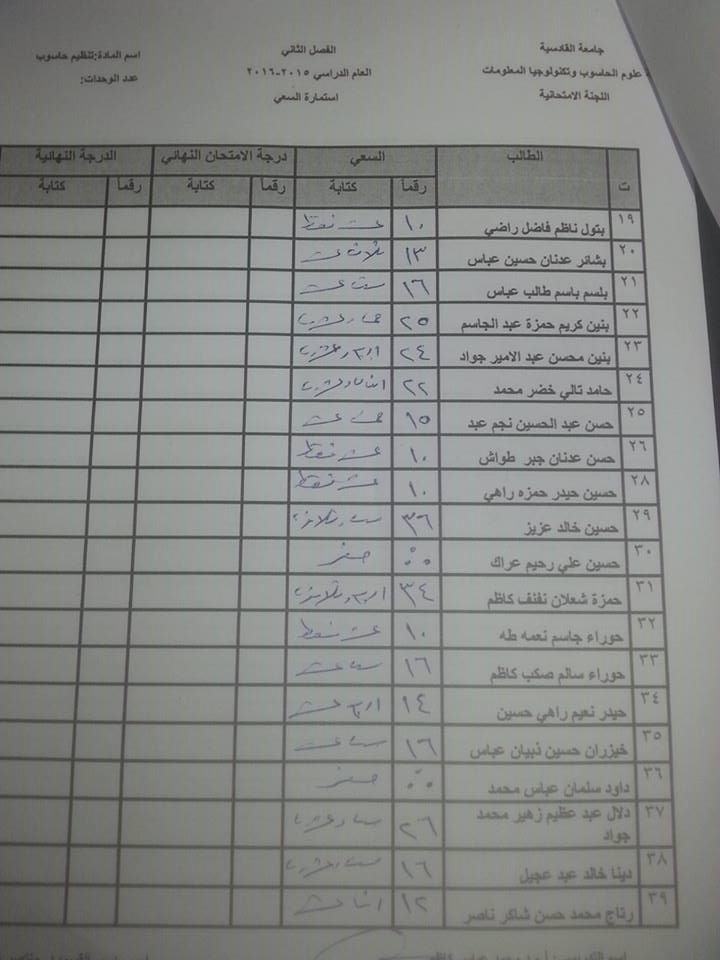 جامعة القادسية
علوم الحاسوب وتكنولوجيا المعلومات
اللجنة الامتحانية
الفصل الثاني
العام الدراسي ٢٠١٥-٢٠١٦
استمارة السعي
اسم المادة:تنظيم حاسوب
عدد الوحدات:
ت الطالب السعي درجة الامتحان النهائي الدرجة النهائية
رقماً كتابة رقماً كتابة رقماً كتابة
١٩ بتول ناظم فاضل راضي ١٠ عشر فقط
٢٠ بشائر عدنان حسين عباس ١٣ ثلاث عشر
٢١ بلسم باسم طالب عباس ١٦ ست عشر
٢٢ بنين كريم حمزة عبد الجاسم ٢٥ خمس وعشرون
٢٣ بنين محسن عبد الامير جواد ٢٤ اربع وعشرون
٢٤ حامد تالي خضر محمد ٢٢ اثنان وعشرون
٢٥ حسن عبد الحسين نجم عبد ١٥ خمس عشر
٢٦ حسن عدنان جبر طواش ١٠ عشر فقط
٢٨ حسين حيدر حمزه راهي ١٠ عشر فقط
٢٩ حسين خالد عزيز ٣٦ ست وثلاثون
٣٠ حسين علي رحيم عراك ٠٠ صفر
٣١ حمزة شعلان نفنف كاظم ٣٤ اربع وثلاثون
٣٢ حوراء جاسم نعمه طه ١٠ عشر فقط
٣٣ حوراء سالم صكب كاظم ١٦ ست عشر
٣٤ حيدر نعيم راهي حسين ١٤ اربع عشر
٣٥ خيزران حسين نبهان عباس ١٦ ست عشر
٣٦ داود سلمان عباس محمد ٠٠ صفر
٣٧ دلال عبد عظيم زهير محمد ٢٦ ست وعشرون
جواد
٣٨ دينا خالد عبد عجيل ١٦
٣٩ رتاج محمد حسن شاكر ناصر ١٢ اثنا عشر